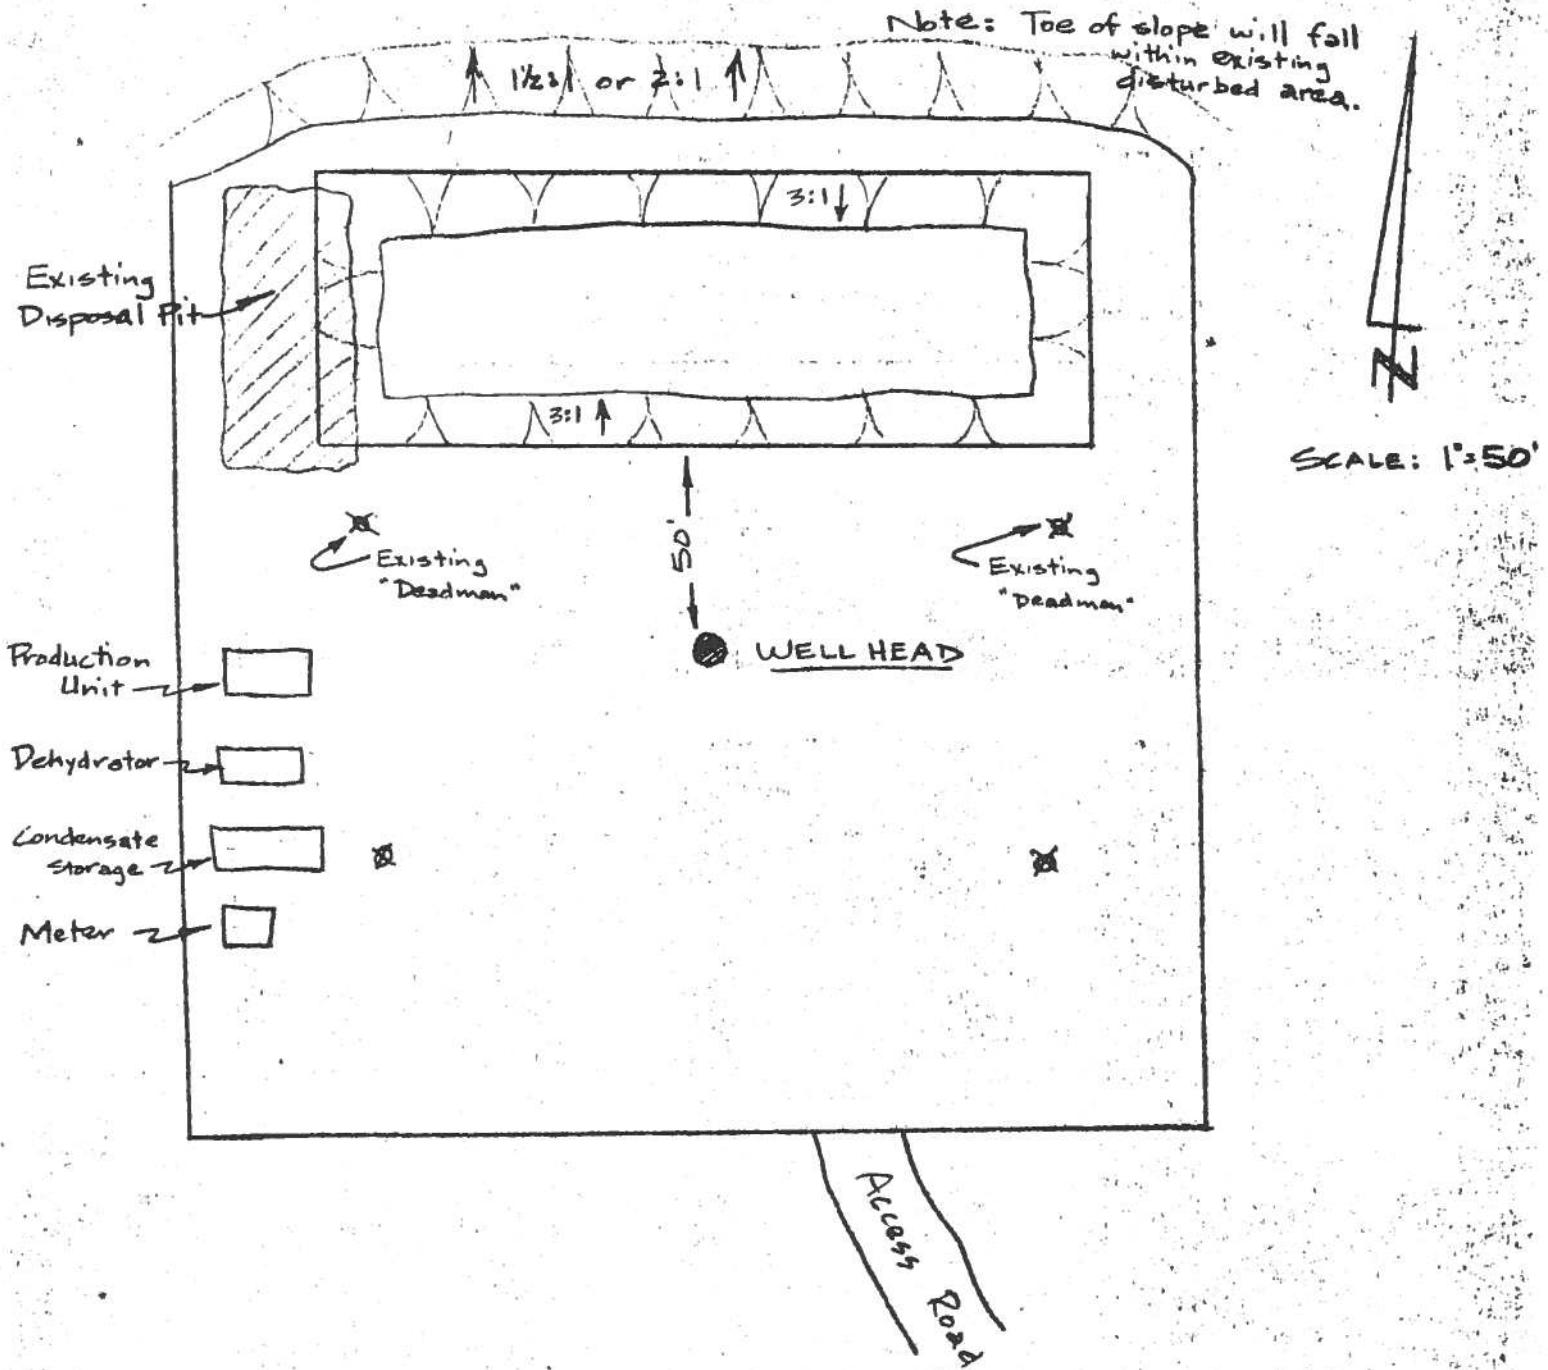 Note: Toe of slope will fall
within existing
disturbed area.
1½:1 or 2:1
3:1
Existing
Disposal Pit
3:1
N
SCALE: 1"=50'
50'
Existing
"Deadman"
Existing
"Deadman"
WELL HEAD
Production
Unit
Dehydrator
Condensate
Storage
Meter
Access Road